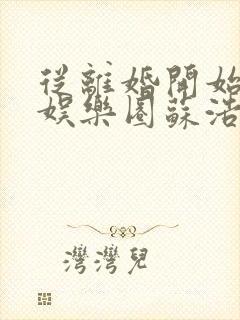 從離婚開始
娛樂圈蘇浩
灣灣兒